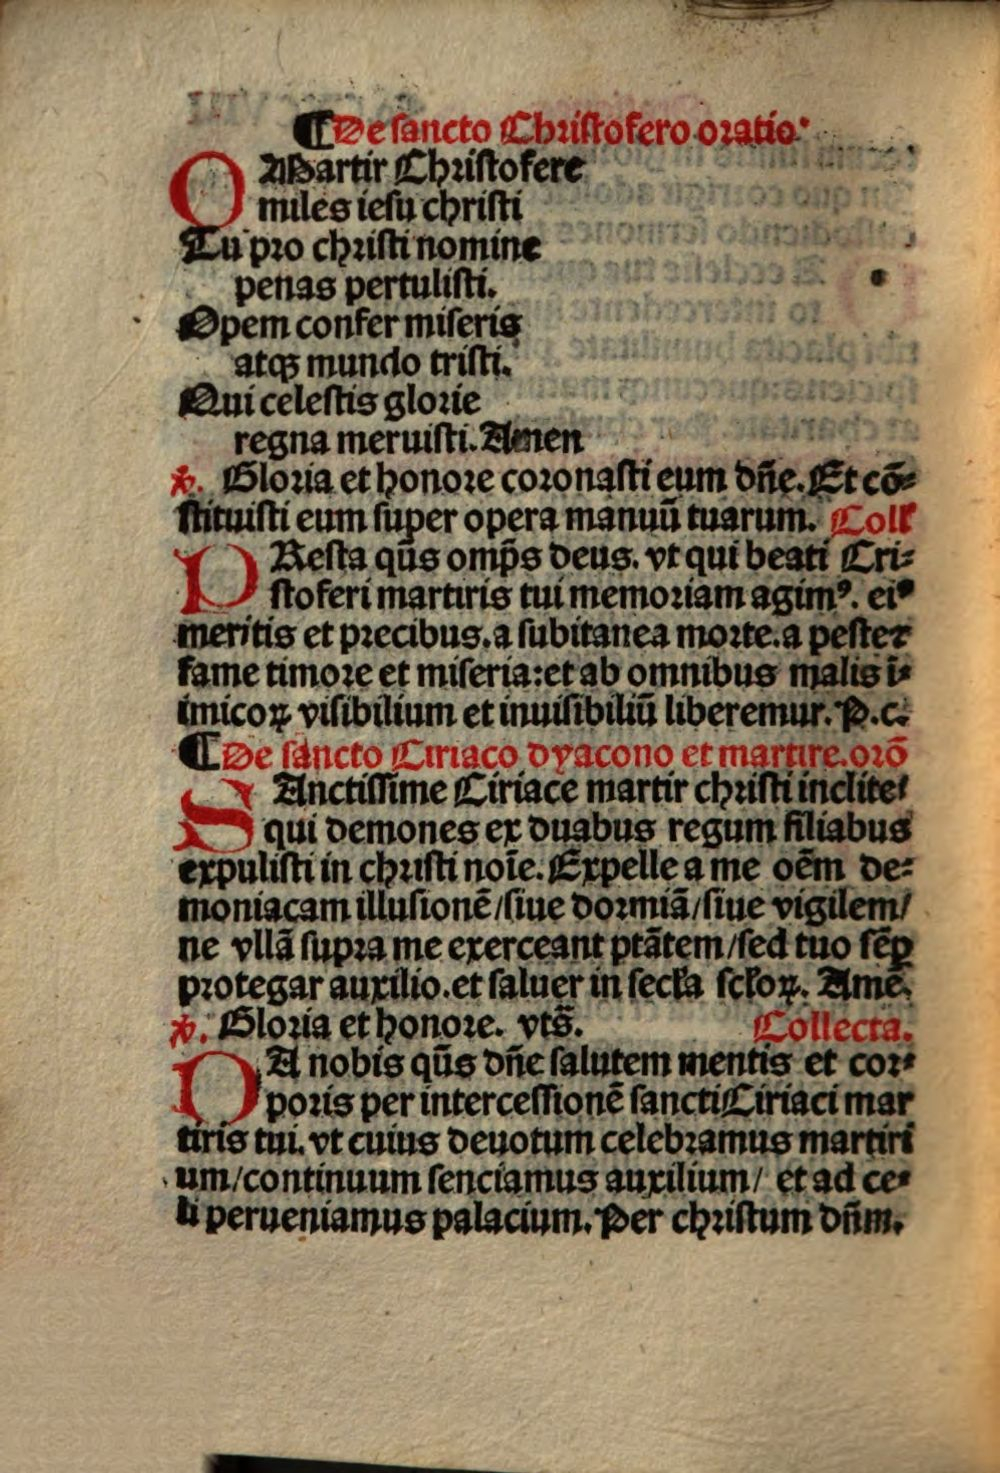 ¶ De sancto Christofero oratio.
O Martir Christofere
miles iesu christi
Tu pro christi nomine
penas pertulisti.
Opem confer miseris
atqꝫ mundo tristi.
Qui celestis glorie
regna meruisti. Amen
℣. Gloria et honore coronasti eum dn̄e. Et cō-
stituisti eum super opera manuū tuarum. Coll'
PResta qūs omp̄s deus. vt qui beati Cri-
stoferi martiris tui memoriam agimꝰ. eiꝰ
meritis et precibus. a subitanea morte. a peste ⁊
fame timore et miseria: et ab omnibus malis ī-
imicoꝝ visibilium et inuisibiliū liberemur. P. c.
¶ De sancto Ciriaco dyacono et martire. orō
SAnctissime Ciriace martir christi inclite/
qui demones ex duabus regum filiabus
expulisti in christi noīe. Expelle a me oēm de-
moniacam illusionē/siue dormiā/siue vigilem/
ne vllā supra me exerceant ptātem/sed tuo sēp
protegar auxilio. et saluer in secła scłoꝝ. Amē.
℣. Gloria et honore. vts̄. Collecta.
DA nobis qūs dn̄e salutem mentis et cor-
poris per intercessionē sancti Ciriaci mar
tiris tui. vt cuius deuotum celebramus martiri
um/continuum senciamus auxilium/ et ad ce-
li perueniamus palacium. Per christum dn̄m.